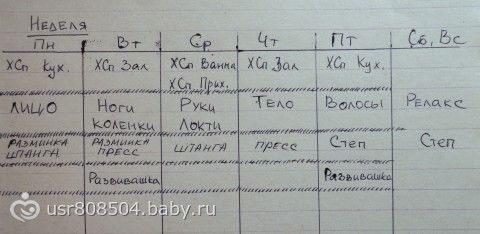 НЕДЕЛЯ
Пн Вт Ср Чт Пт Сб, Вс
ХСп Кух. ХСп Зал ХСп Ванна ХСп Зал ХСп Кух.
ХСп Прих.
ЛИЦО Ноги Руки Тело Волосы Релакс
Коленки Локти
РАЗМИНКА РАЗМИНКА ШТАНГА ПРЕСС Степ Степ
ШТАНГА ПРЕСС
Развивашка Развивашка
usr808504.baby.ru